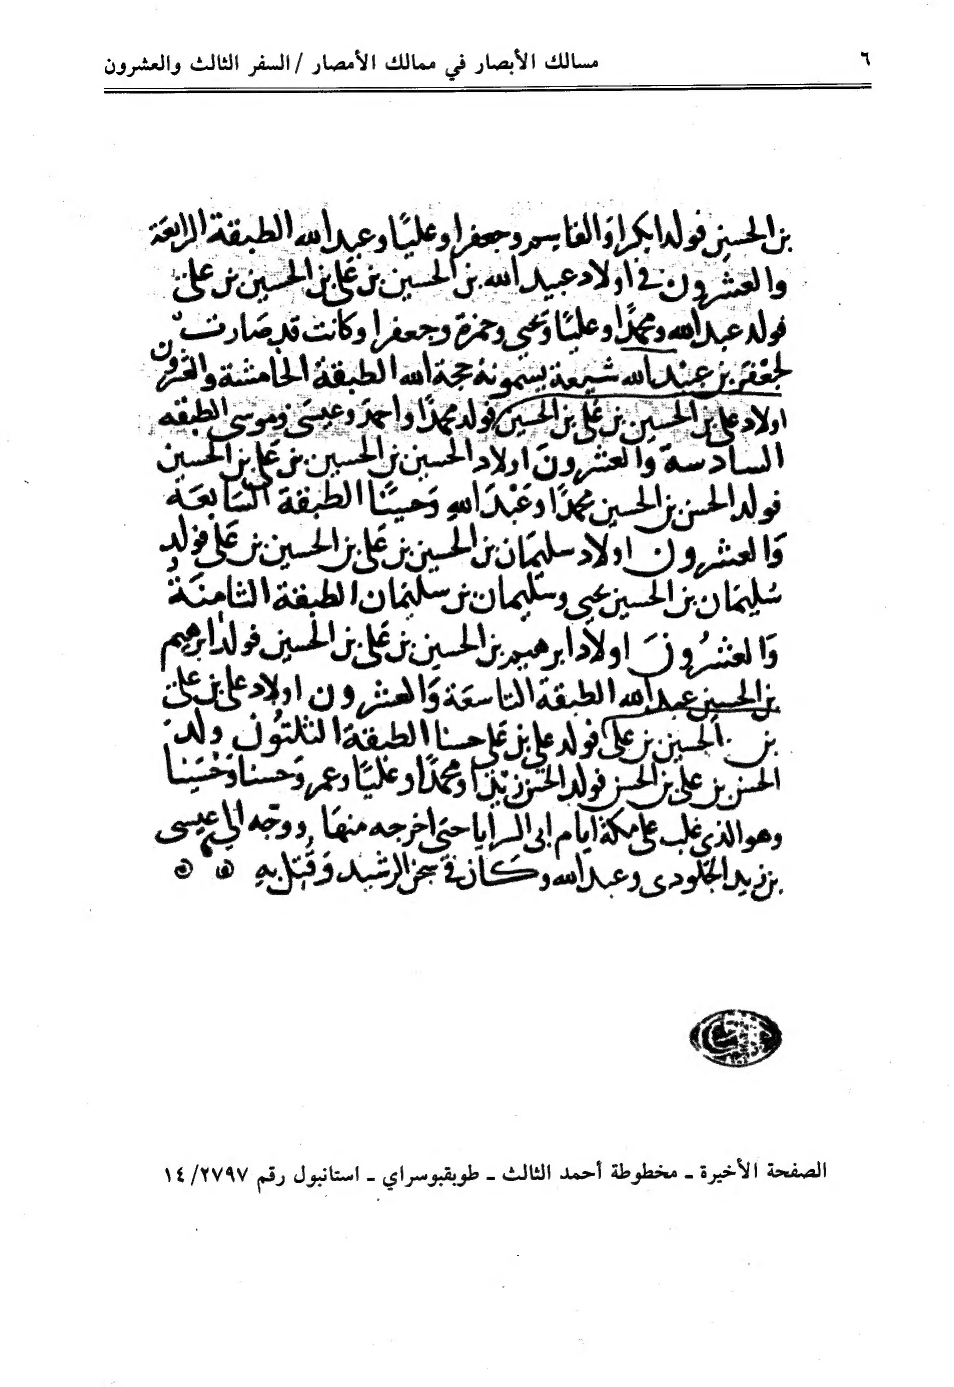 ٦
مسالك الأبصار في ممالك الأمصار / السفر الثالث والعشرون
بن الحسين فولد ابكرا والقاسم وجعفرا وعليا وعبد الله الطبقة الرابعة
والعشرون في اولاد عبيد الله بن الحسين بن على بن الحسين بن على
فولد عبد الله ومحمدا وعليا ويحيى وحمزة وجعفرا وكانت قد صارت
لجعفر بن عبيد الله شيعة يسمونه حجة الله الطبقة الخامشة والعشرون
اولاد على بن الحسين بن على بن الحسين فولد محمدا واحمد وعيسى وموسى الطبقه
السادسة والعشرون اولاد الحسين بن الحسين بن على بن الحسين
فولد الحسن بن الحسين محمدا وعبد الله وحسينا الطبقة السابعة
والعشرون اولاد سليمان بن الحسين بن على بن الحسين بن على فولد
سليمان بن الحسين يحيى وسليمان بن سليمان الطبقة الثامنة
والعشرون اولاد ابرهيم بن الحسين بن على بن الحسين فولد ابرهيم
بن الحسين عبد الله الطبقة التاسعة والعشرون اولاد على بن على
بن الحسين بن على فولد على بن على حسنا الطبقة الثلثون ولد
الحسن بن على بن الحسن فولد الحسن زيدا ومحمدا وعليا وعمر وحسنا وحسينا
وهو الذى غلب على مكة ايام ابى السرايا حتى اخرجه منها ووجه الى عيسى
بن زيد الجلودى وعبد الله وكان في سجن الرشيد وقتل به
الصفحة الأخيرة ـ مخطوطة أحمد الثالث ـ طوبقبوسراي ـ استانبول رقم ٢٧٩٧/ ١٤